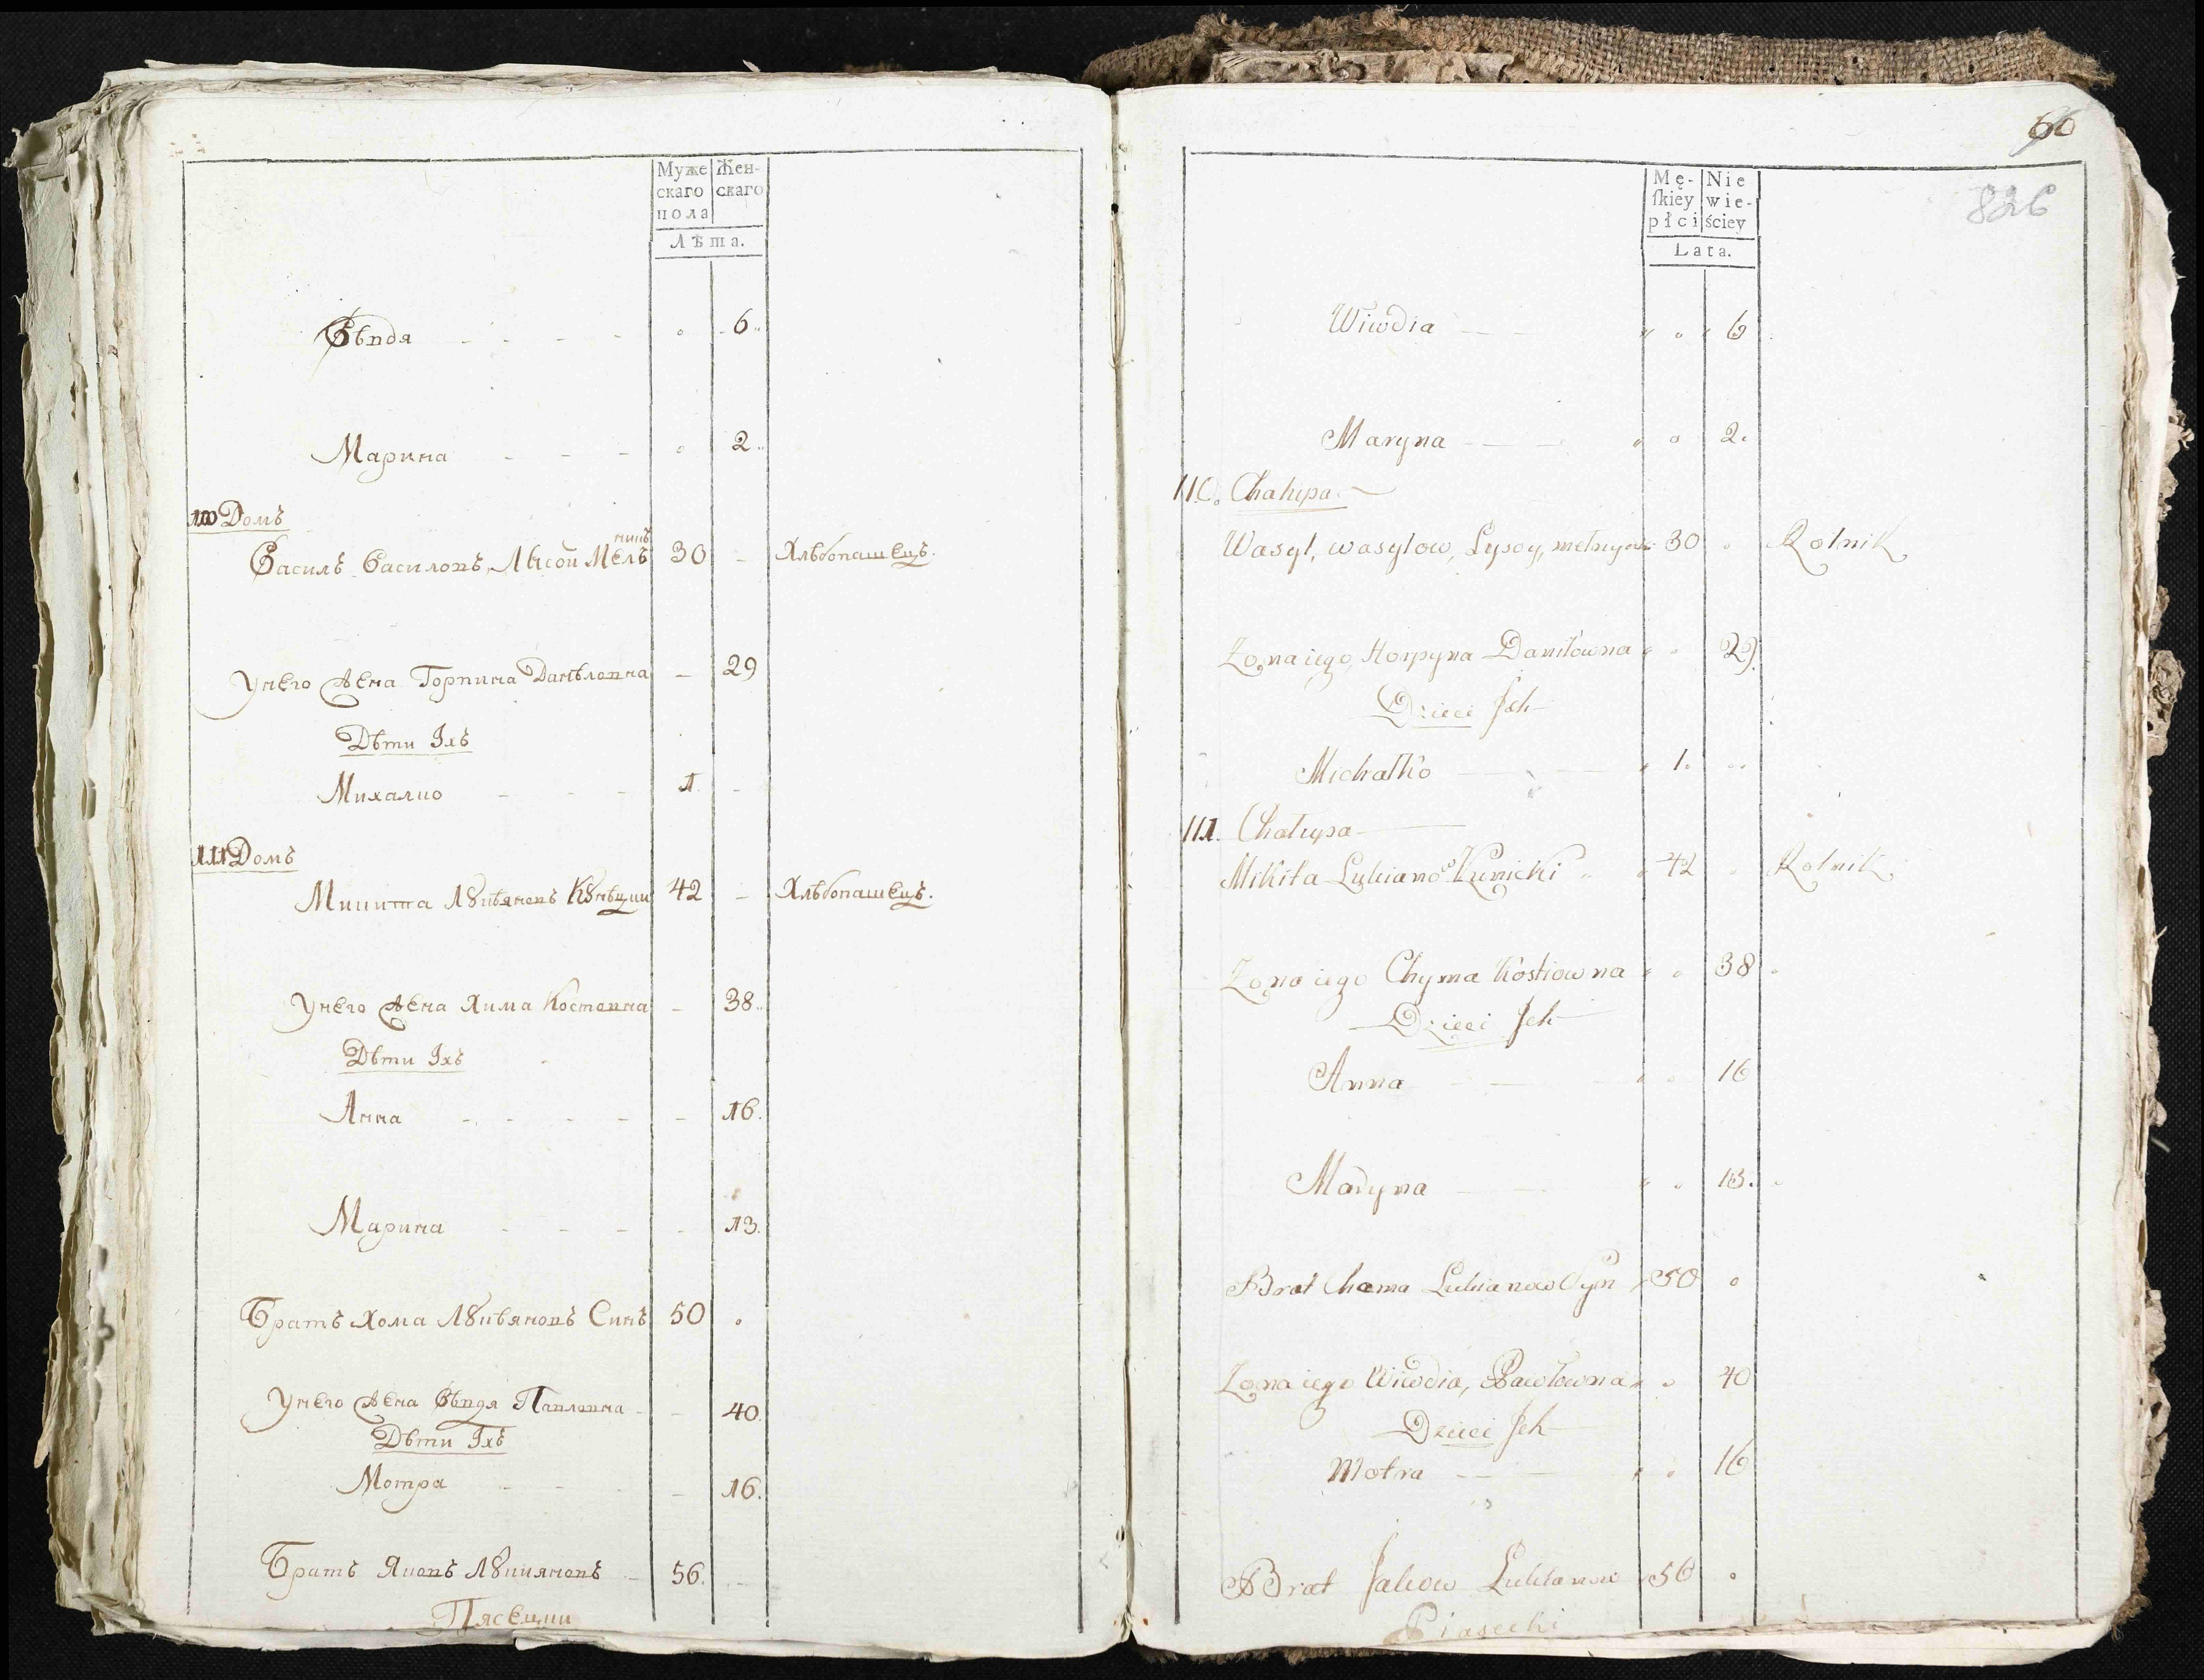 Муже Жен-
скаго скаго
пола
Лѣта.
Вѣвдя 6
Марина 2
110 Домъ
нинъ
Василъ Василовъ Лисой Мелъ 30 Хлѣбопашецъ.
У него жена Горпина Данѣловна 29
Дѣти Іхъ
Михалко 1
111 Домъ
Микита Лꙋкѣяновъ Кꙋнѣцки 42 Хлѣбопашецъ.
У него жена Хима Костовна 38
Дѣти Іхъ
Анна 16.
Марина 13.
Братъ Хома Лꙋкѣяновъ Синъ 50
У него жена Вѣвдя Павловна 40
Дѣти Іхъ
Мотра 16.
Братъ Яковъ Лꙋкияновъ 56.
Пясецки
66
826
Mę- Nie
ſkiey wie-
płci ściey
Lata.
Wiwdia 6
Maryna 2.
110. Chałupa
Wasyl, wasylow, Łysoy, melnyn 30 Rolnik
Zona iego, Horpyna Daniłowna 29
Dzieci Jch
Michałko 1.
111. Chałupa
Mikita Lukianow Kunicki 42 Rolnik
Zona iego Chyma Kostiowna 38
Dzieci Jch
Anna 16
Maryna 13.
Brat Choma Lukianow Syn 50
Zona iego Wiwdia, Pawłowna 40
Dzieci Jch
Motra 16
Brat Jakow Lukianow 56
Piasecki